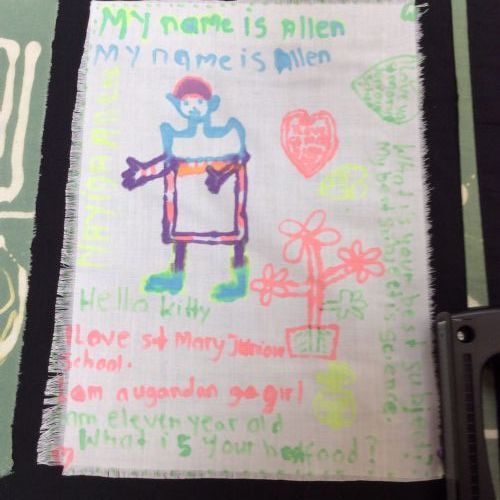 My name is Allen
My name is Allen
Hello kitty
I Love st Mary Junior
School.
I am a ugandan go girl
am eleven year old
What is your food?
What is your best subject
my best subject is science.